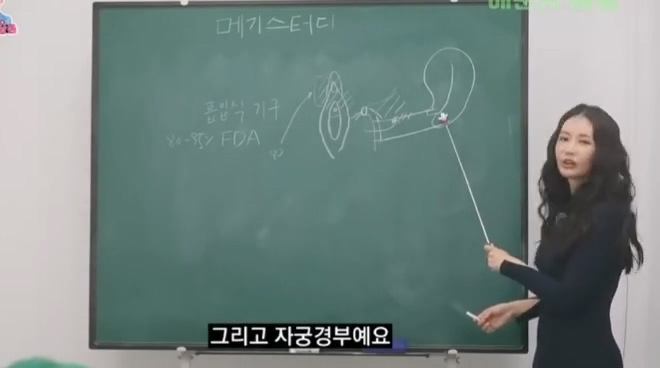 메기스터디
흡입식 기구
80-85% FDA
그리고 자궁경부예요